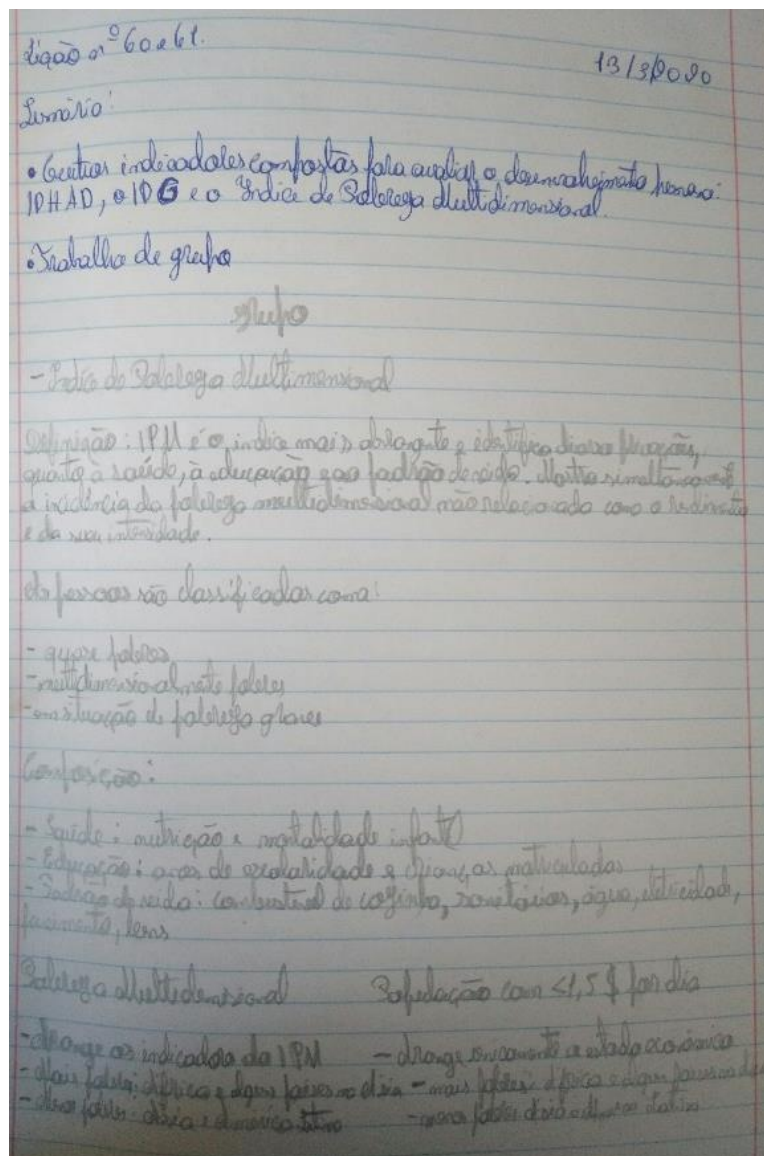 Lição nº 60 e 61.
13/3/2020
Sumário:
• Outros indicadores compostos para avaliar o desenvolvimento humano:
IDHAD, o IDG e o Índice de Pobreza Multidimensional.
• Trabalho de grupo
grupo
- Índice de Pobreza Multimensional
Definição: IPM é o índice mais abrangente e identifica privações,
quanto à saúde, à educação e ao padrão de vida. Mostra simultaneamente
a incidência da pobreza multidimensional não relacionada com o rendimento
e da sua intensidade.
As pessoas são classificadas como:
- quase pobres
- multidimensionalmente pobres
- em situação de pobreza graves
Composição:
- Saúde: nutrição e mortalidade infantil
- Educação: anos de escolaridade e crianças matriculadas
- Padrão de vida: combustível de cozinha, sanitários, água, eletricidade,
pavimento, bens
Pobreza Multidensional
População com <1,5 $ por dia
- Abrange os indicadores da IPM
- Abrange unicamente o estado económico
- Mais pobres: África e alguns países na Ásia
- mais pobres: África e alguns países na
- Menos pobres: Ásia e América latina
- menos pobres